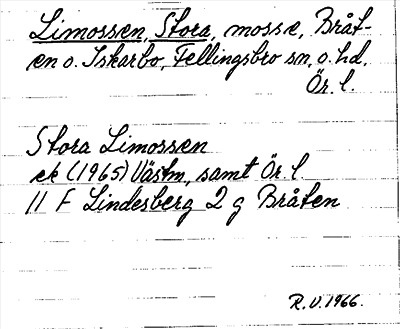 Limossen, Stora, mosse, Bråt-
en o. Iskarbo, Fellingsbro sn, o. hd,
Ör. l.
Stora Limossen
ek (1965) Västm, samt Ör. l
11 F Lindesberg 2 g Bråten
R. V. 1966.